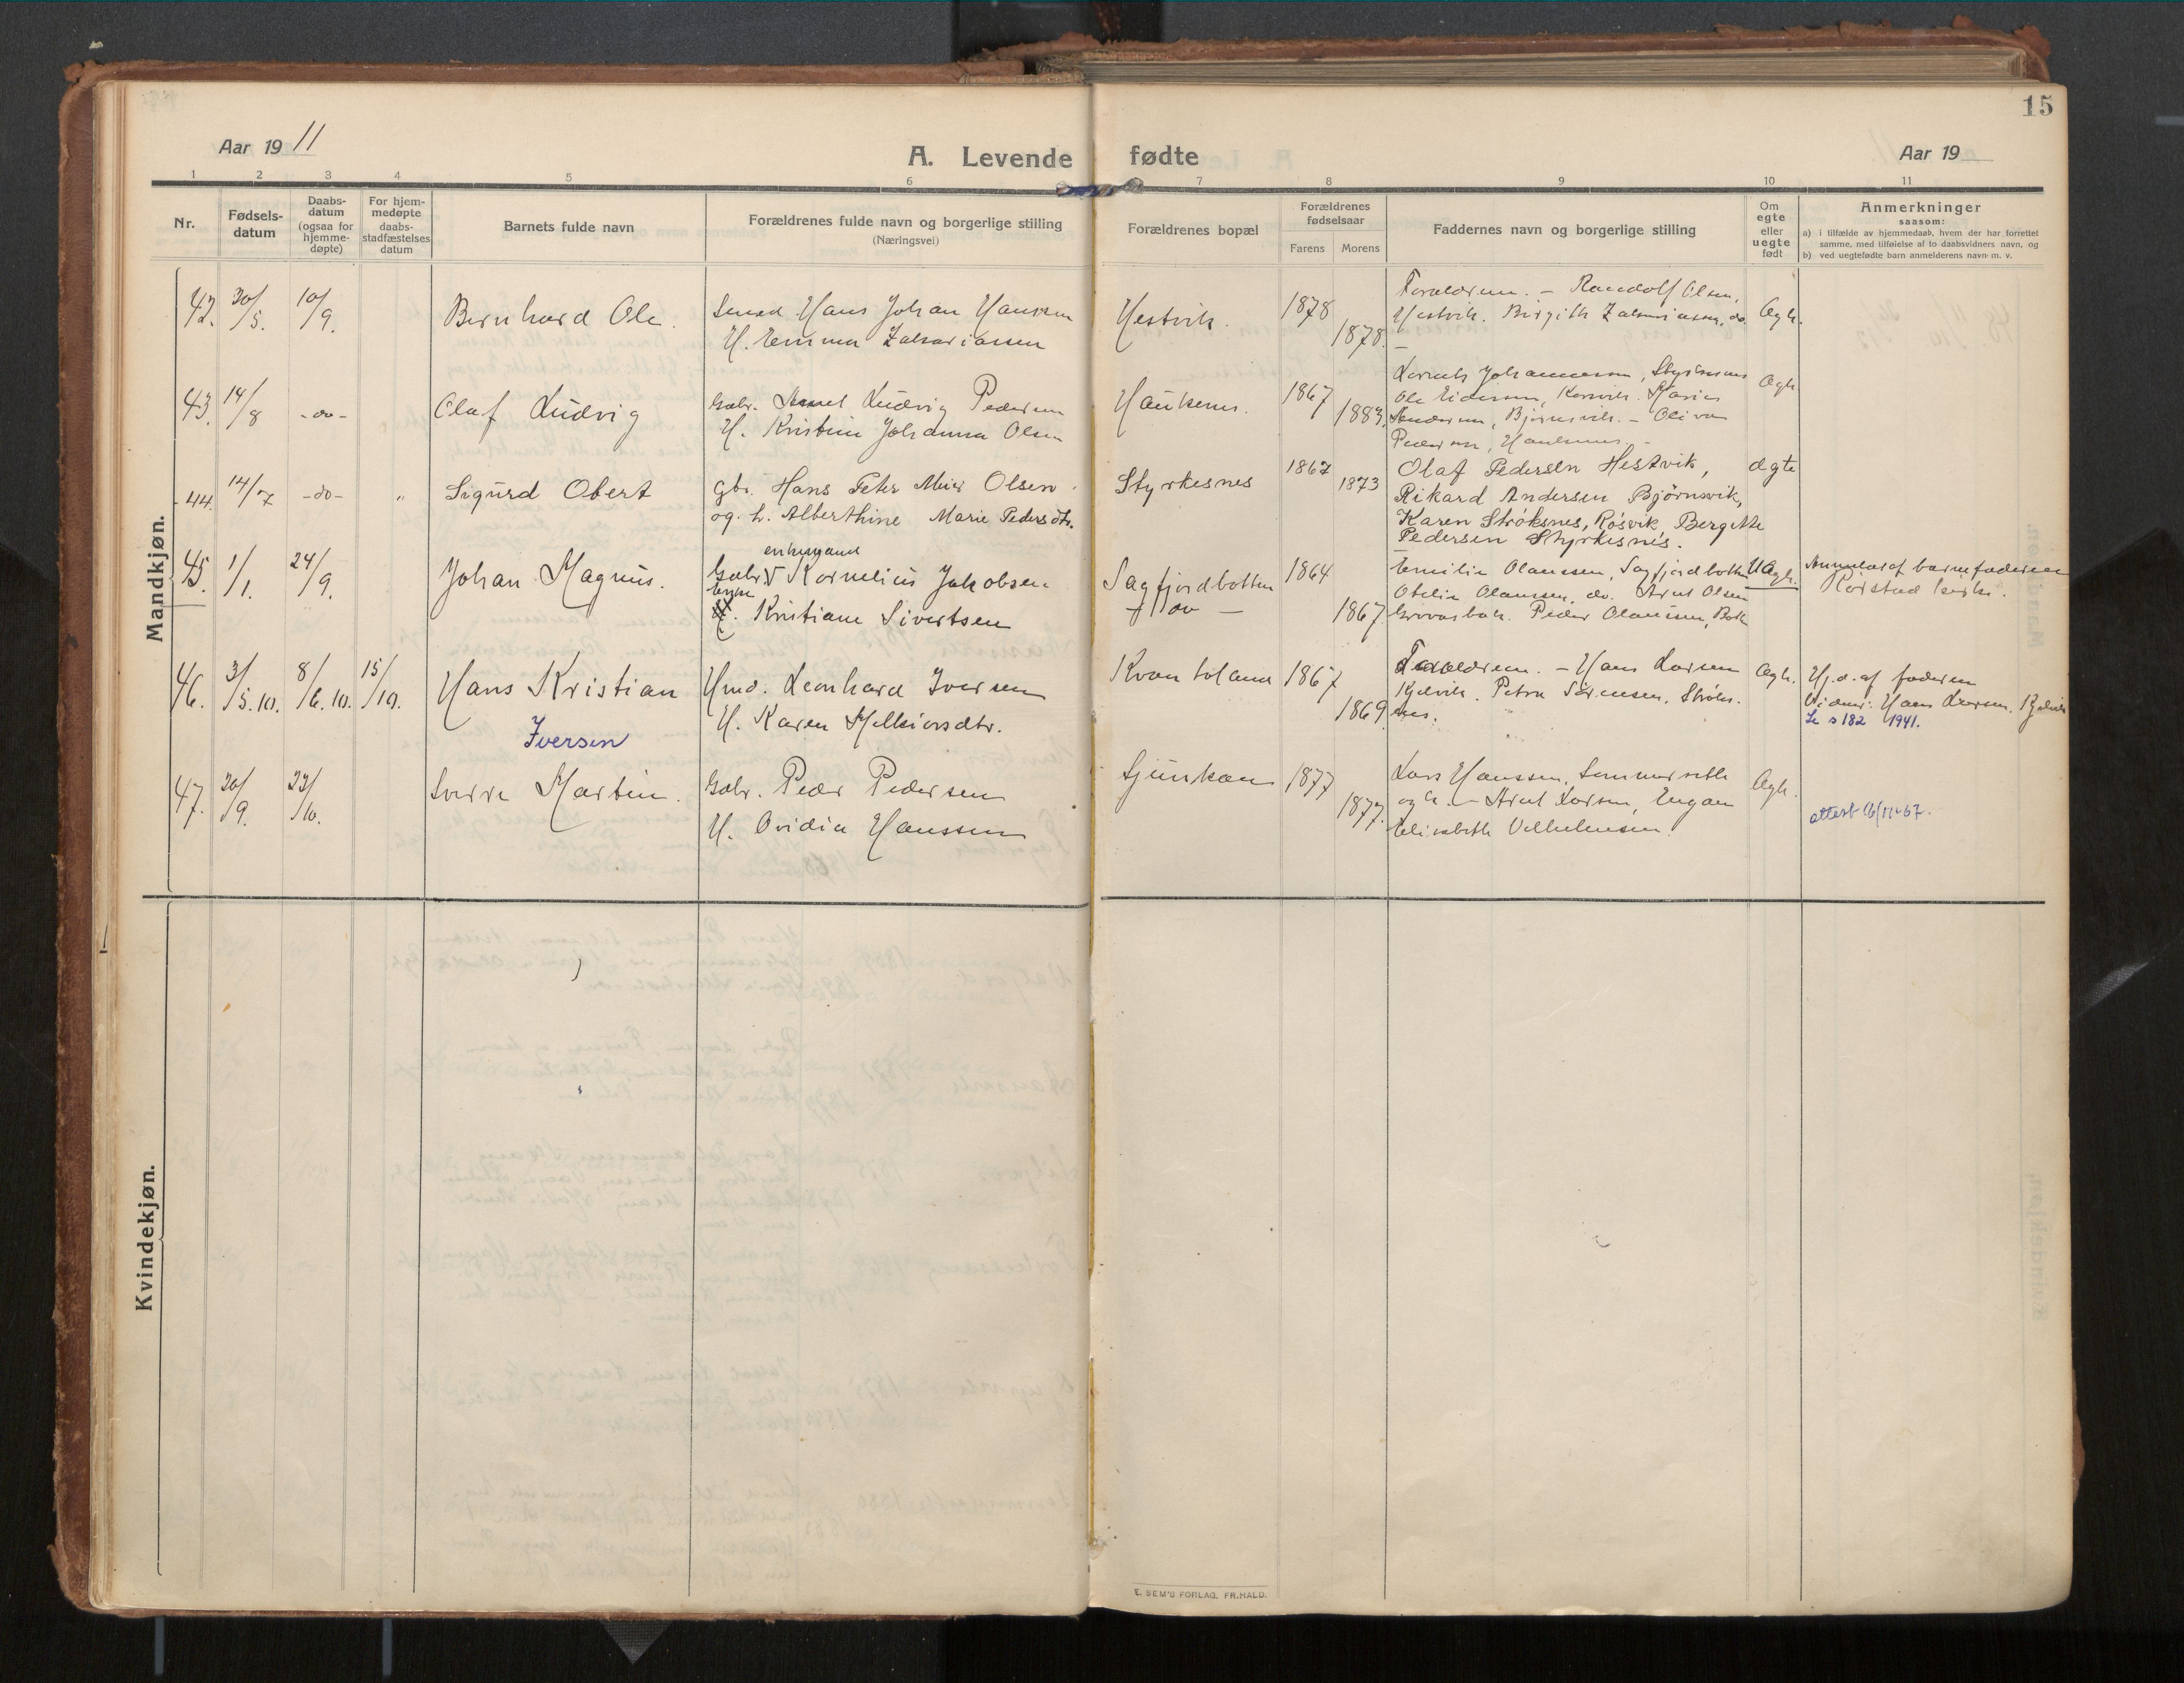 15
Aar 1911
A. Levende fødte
Aar 19
1 2 3 4 5 6 7 8 9 10 11
Nr.
Fødsels-
datum
Daabs-
datum
(ogsaa for
hjemme-
døpte)
For hjem-
medøpte
daabs-
stadfæstelses
datum
Barnets fulde navn
Forældrenes fulde navn og borgerlige stilling
(Næringsvei)
Forældrenes bopæl
Forældrenes
fødselsaar
Farens Morens
Faddernes navn og borgerlige stilling
Om
egte
eller
uegte
født
Anmerkninger
saasom:
a) i tilfælde av hjemmedaab, hvem der har forrettet
samme, med tilføielse af to daabsvidners navn, og
b) ved uegtefødte barn anmelderens navn m. v.
Mandkjøn.
42. 30/5. 10/9. Bernhard Ole. Hans Johan Hanssen Hestvik. 1878 Forældrene. – Randolf Olsen, Ægte.
H. Emma Zakariassen 1878. Hestvik. Birgith Zakariassen, do.
43. 14/8 -do- Olaf Ludvig Gbr. Ludvig Pedersen Haukenes. 1867 Johannessen, Styrkesnes Ægte
H. Kristine Johanna Olsen 1883. Ole Eidersen, Korsvik. Marius
Andersen, Bjørnsvik. – Oliva
Pedersen, Haukenes. –
44. 14/7 -do- " Sigurd Obert Gbr. Hans Peter Meier Olsen Styrkesnes 1867 1873 Olaf Pedersen Hestvik, ægte
og h. Alberthine Marie Pedersdtr. Rikard Andersen Bjørnsvik,
Karen Strøksnes, Røsvik, Bergitte
Pedersen Styrkesnes.
45. 1/1. 24/9. Johan Magnus. enkemand
Gbr. Kornelius Jakobsen Sagfjordbotten 1864 Emilie Olaussen, Sagfjordbotten Uægte. Anmeldt af barnefaderen
Enke
H. Kristiane Sivertsen – do – 1867. Otelie Olaussen, do. Arnt Olsen Rørstad kirke.
Peder Olaussen, Botn
46. 3/5.10. 8/6.10. 15/10. Hans Kristian Hmd. Leonhard Iversen Kvantoland 1867 Forældrene. – Hans Larsen Ægte. Hj.d. af faderen
Iversen H. Karen Melkiorsdtr. 1869. Kjelvik. Petra Sørensen, Strøks-
nes. Vidner: Hans Larsen, Kjelvik
Se s 182 1941.
47. 30/9. 22/10. Sverre Martin. Gbr. Peder Pedersen Sjunkan 1877 Lars Hanssen, Sommerseth Ægte.
H. Ovidia Hanssen 1877. og h. – Arnt Larsen, Engan
Elisabeth Vilhelmsen. attest 16/11-67.
Kvindekjøn.
E. SEM'S FORLAG, FR.HALD.